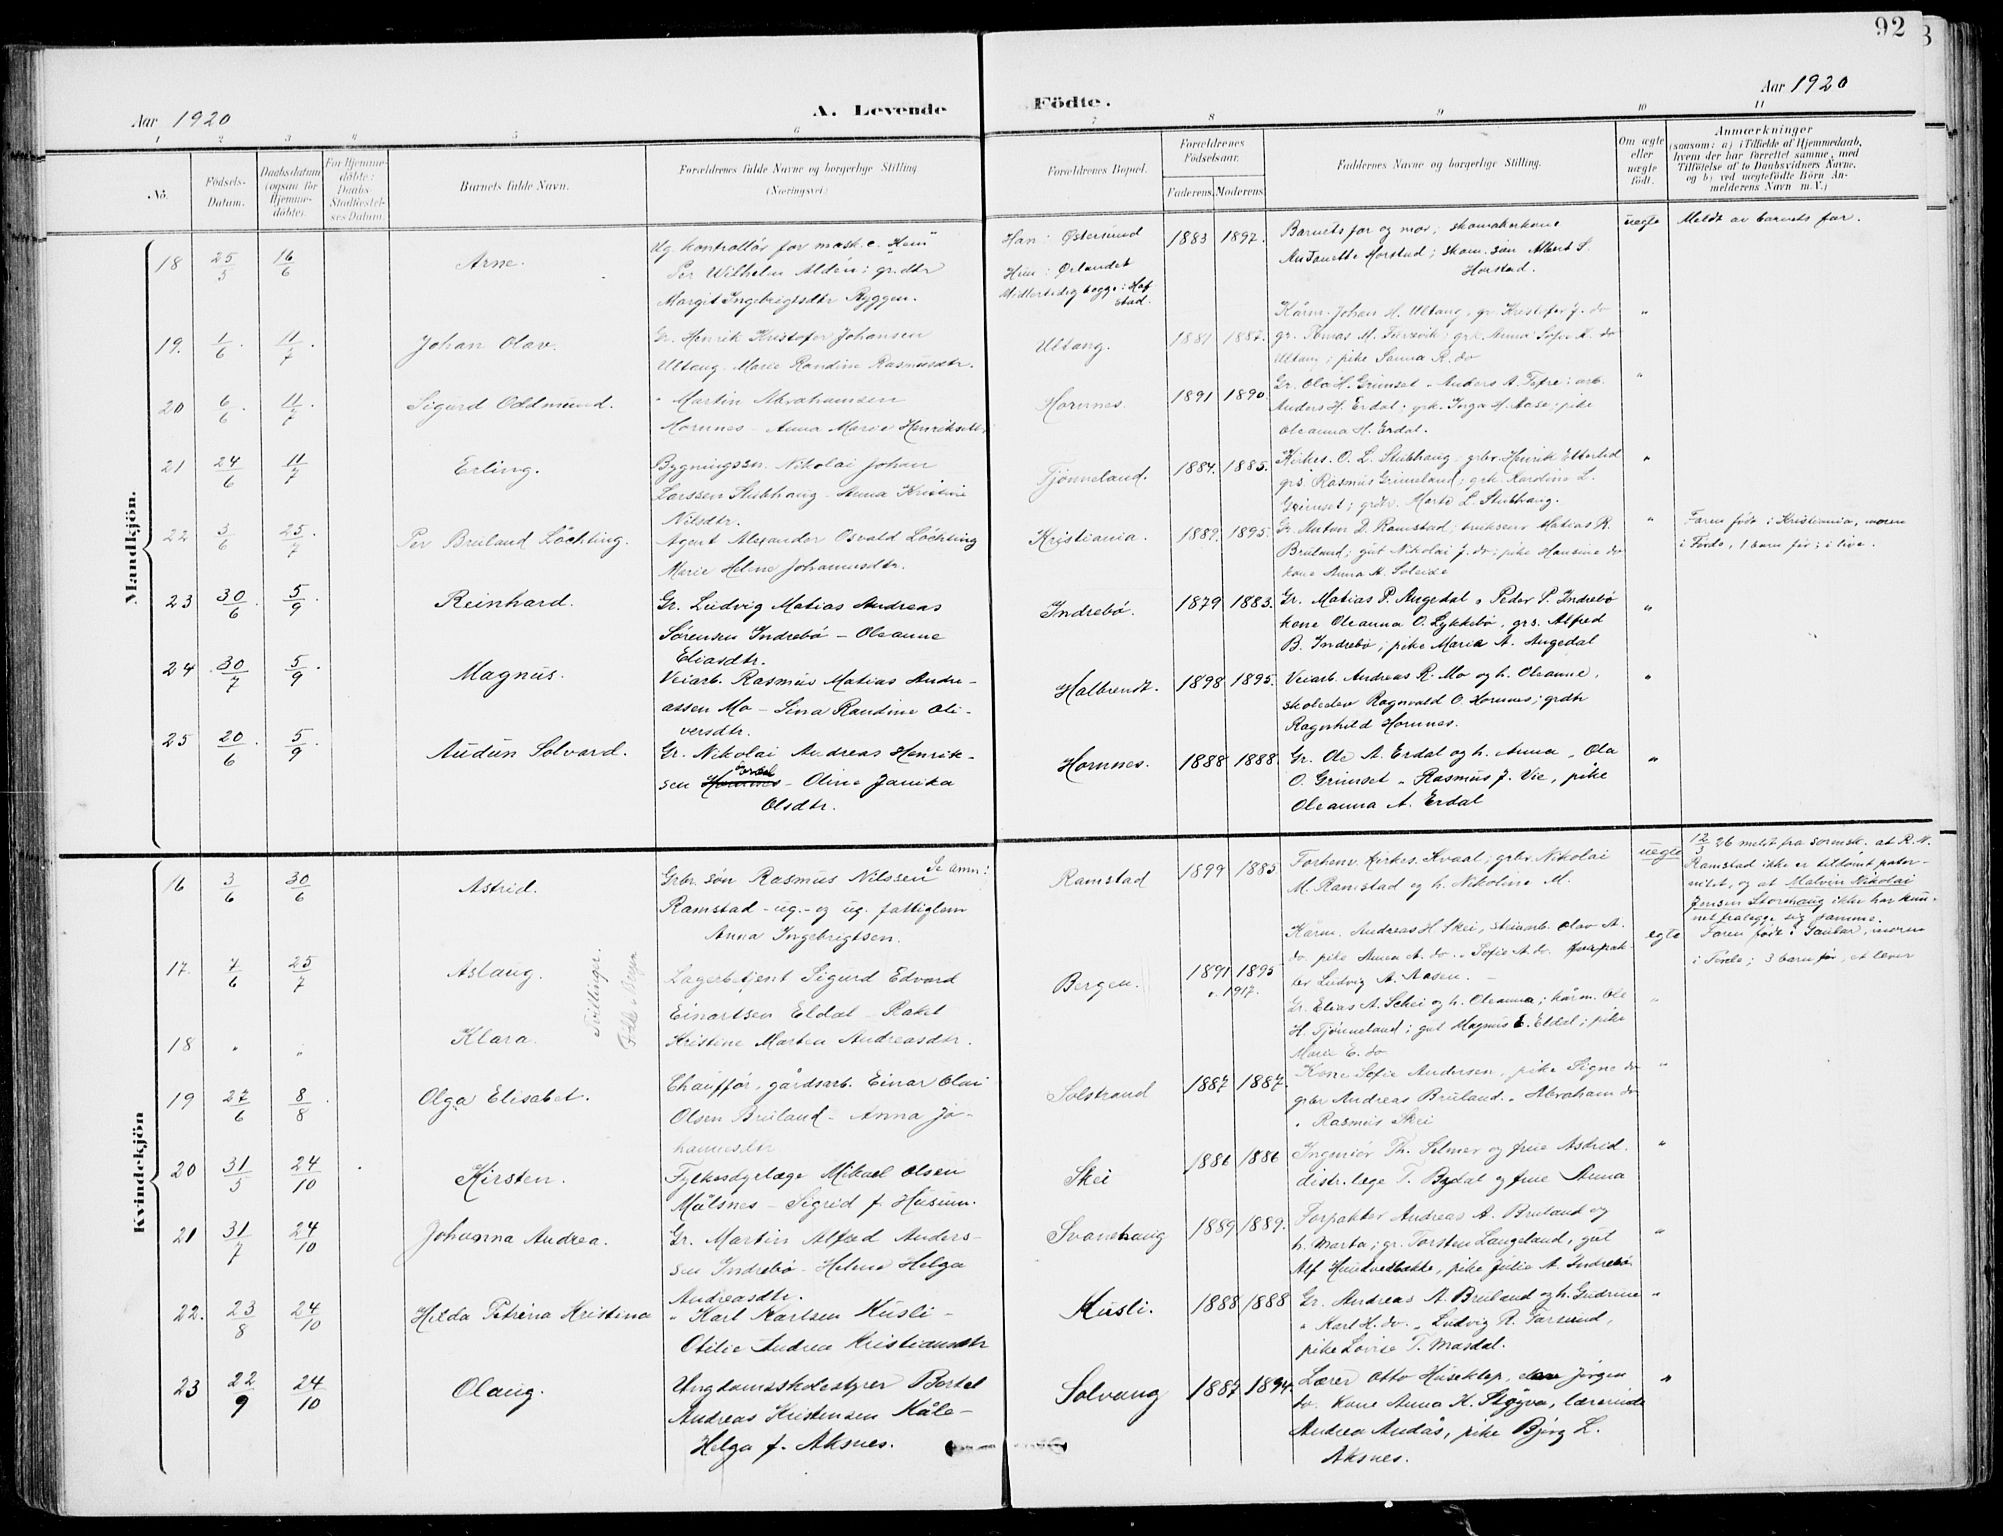 92
Aar 1920
A. Levende
Födte.
Aar 1920
1 2 3 4 5 6 7 8 9 10 11
No.
Födsels-
Datum.
Daabsdatum
(ogsaa for
Hjemme-
döbte).
For Hjemme-
döbte:
Daabs-
Stadfæstel-
ses Datum.
Barnets fulde Navn.
Forældrenes fulde Navne og borgerlige Stilling
(Næringsvei)
Forældrenes Bopæl.
Forældrenes
Födselsaar.
Faderens. Moderens.
Faddernes Navne og borgerlige Stilling.
Om ægte
eller
uægte
født.
Anmærkninger
(saasom: a) i Tilfælde af Hjemmedaab,
hvem der har forrettet samme, med
Tilföielse af to Daabsvidners Navne.
og b) ved uægtefödte Börn An-
melderens Navn m. V.)
Mandkjön.
18 25/5 16/6 Arne.
Ug. kontrollör for mask. c.
Per Wilhelm Aldén; gr.dtr
Margit Ingebrigtsdtr Ryggen.
Han: Østersund
Hun: Ørlandet
Midlertidig begge: Haf
stad.
1883 1897.
Barnets far og mor; skomakerkone
Antonette Horstad; skom. søn Albert S.
Horstad.
uegte Meldt av barnets far.
19. 1/6 11/7 Johan Olav.
Gr. Henrik Kristofer Johansen
Ultang - Marie Randine Rasmusdtr.
Ultang. 1881 1887.
Kårm. Johan H. Ultang, gr. Kristofer J. do
gr. Tomas M. ; grk. Anna Sofie K. do
Ultang; pike Sanna R. do
"
20 6/6 11/7 Sigurd Oddmund.
" Martin Abrahamsen
Hornnes - Anna Marie Henriksdtr
Hornnes. 1891 1890.
Gr. Ola H. Grimset " Anders A. Tefre; arb.
Anders H. Erdal; grk. Inga H. Aase; pike
Oleanna H. Erdal.
"
21 24/6 11/7 Erling.
Bygningssn. Nikolai Johan
Larssen Stubhaug - Anna Kristine
Nilsdtr.
Tjønneland. 1884. 1885.
Kirkes. O. L. Stubhaug; grbr. Henrik
grs. Rasmus Grimeland; grk. Karoline L.
Grimset; grdtr. Marta L. Stubhaug.
"
22 3/6 25/7 Per Bruland Löchting.
Agent Alexander Osvald Löchting
Marie Helene Johannesdtr.
Kristiania. 1889. 1895.
Gr. Anton D. Ramstad; brukseier Matias R.
Bruland; gut Nikolai J. do; pike Hansine do
kone Anna M. Soleide
" Faren föd i Kristiania, moren
i Förde, 1 barn før; i live.
23 30/6 5/9 Reinhard.
Gr. Ludvig Matias Andreas
Sørensen Indrebø - Oleanne
Eliasdtr.
Indrebø. 1879 1883.
Gr. Matias P. Angedal " Peder P. Indrebø
kone Oleanna O. Lykkebø, grs. Alfred
B. Indrebø; pike Maria A. Angedal
"
24 30/7 5/9 Magnus.
Veiarb. Rasmus Matias Andre-
assen Mo - Lina Randine Oli-
versdtr.
Halbrendt. 1898 1895.
Veiarb. Andreas R. Mo og h. Oleanne,
skoleelev Ragnvald O. Hornnes; grdtr
Ragnhild Hornnes.
"
25 20/6 5/9 Audun Solvard.
Gr. Nikolai Andreas Henrik-
sen Hornnes Erdal - Oline Janika
Olsdtr.
Hornnes. 1888 1888
Gr. Ole A. Erdal og h. Anna " Ola
O. Grimset " Rasmus J. Vie, pike
Oleanna A. Erdal
"
Kvindekjön
16 3/6 30/6 Astrid.
Grbr. søn Rasmus Nilssen Se anm:
Ramstad - ug. - og ug. fattiglem
Anna Ingebrigtsen.
Ramstad 1899 1885
Forhenv. kirkes. Kvaal; grbr Nikolai
M. Ramstad og h. Nikoline M.
uegte 12/3 26 meldt fra sorensk. at R. N.
Ramstad ikke er tildömt pater-
nitet, og at Malvin Nikolai
Jensen Storhaug ikke har kun-
net fralegge sig samme.
17. 7/6 25/7 Aslaug.
Tvillinger.
Födt i Bergen
Lagerbetjent Sigurd Edvard
Einartsen Eldal - Rakel
Kristine Marten Andreasdtr.
Bergen. 1891 1895
v. 1917.
Kårm. Andreas H. Skei, steinarb. Olav A.
do. pike Anna A. do. " Sofie A. do. forpak-
ter Ludvig A. Aasen. -
egte Faren föd i Gaular, moren
i Förde; 3 barn før, et lever
18 " " Klara.
Gr. Elias A. Schei og h. Oleanna; kårm. Ole
H. Tjønneland; gut Magnus E. Eldal; pike
Marie E. do
"
19 27/6 8/8 Olga Elisabet.
Chaufför, gårdsarb. Einar Olai
Olsen Bruland - Anna Jo-
hannesdtr
Solstrand 1887 1887.
Kone Sofie Andersen, pike Signe do
grbr Andreas Bruland. " Abraham do
" Rasmus Skei
"
20 31/5 24/10 Kirsten.
Fylkesdyrlæge Mikael Olsen
Målsnes - Sigrid f. Husum.
Skei 1886 1886
Ingeniör Th. Selmer og frue Astrid.
distr. læge T. Bydal og frue Anna
"
21 31/7 24/10 Johanna Andrea.
Gr. Martin Alfred Anders-
sen Indrebø - Helene Helga
Andreasdtr.
Svanehaug 1889 1889.
Forpakter Andreas A. Bruland og
h. Marta; gr. Torsten Langeland, gut
Alf Hundvebakke, pike Julie A. Indrebø
"
22. 23/8 24/10 Hilda Petrina Kristina
" Karl Karlsen Kusli -
Otilie Andrea Kristiansdtr
Kusli. 1888 1888
Gr. Andreas A. Bruland og h. Gudrine
" Karl H. do. " Ludvig A. Farsund,
pike Lovise T. Masdal.
"
23 22/9 24/10 Olaug.
Ungdomsskolestyrer Bertel
Andreas Kristensen Kåle-
Helga f. Aksnes.
Solvang 1887 1894.
Lærer Otto Huseklep, elev Jørgen
do. kone Anna K. Støyva, lærerinde
Andrea Andås, pike Björg L.
Aksnes.
"